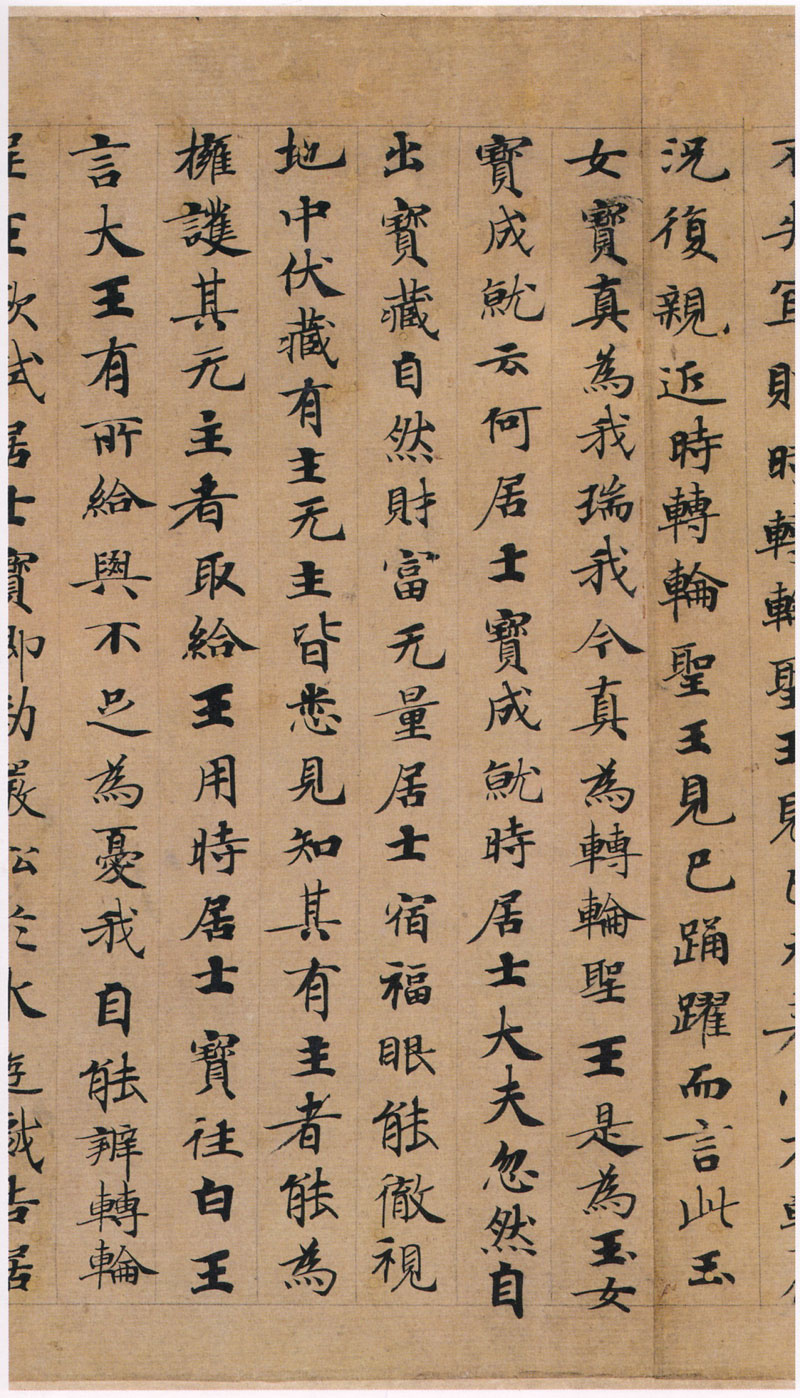 不失宜則時轉輪聖王見已
況復親近時轉輪聖王見已踊躍而言此玉
女寶真為我瑞我今真為轉輪聖王是為玉女
寶成就云何居士寶成就時居士大夫忽然自
出寶藏自然財富无量居士宿福眼能徹視
地中伏藏有主无主皆悉見知其有主者能為
擁護其无主者取給王用時居士寶往白王
言大王有所給與不足為憂我自能辨轉輪
聖王欲試居士寶即勅嚴船於水遊戲告居